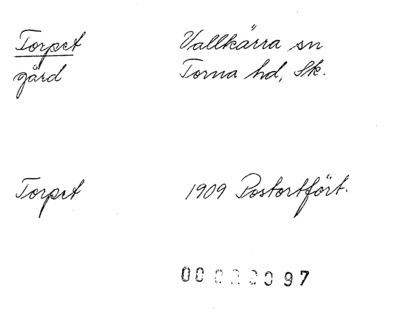 Torpet Vallkärra sn
gård Torna hd, Sk.
Torpet 1909 Postortfört.